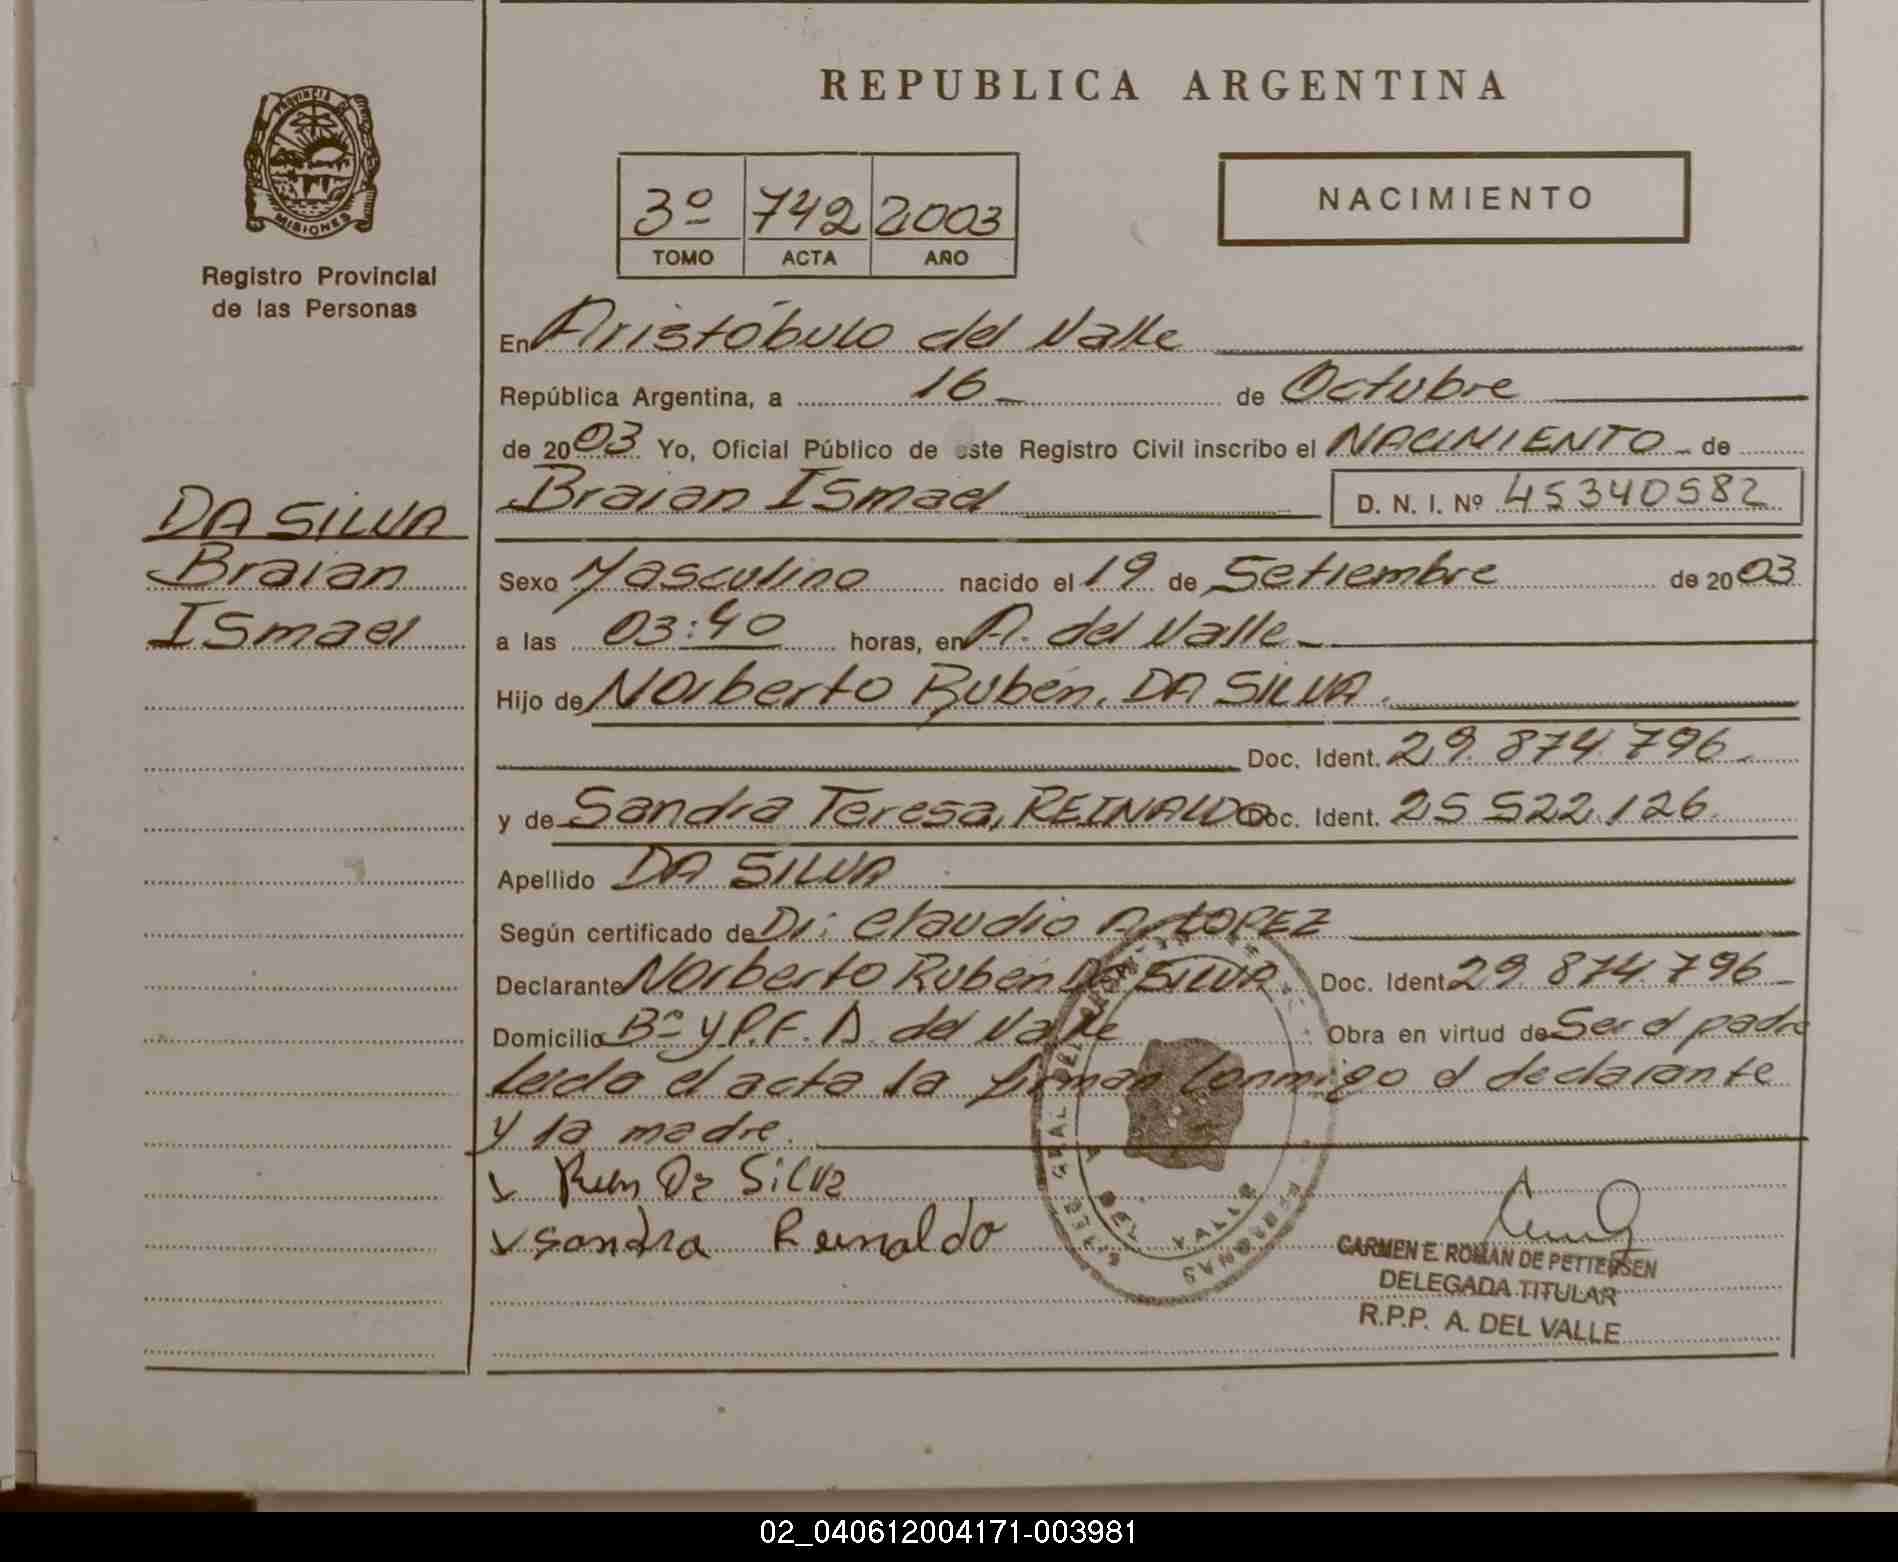 REPUBLICA ARGENTINA
PROVINCIA DE
MISIONES
Registro Provincial
de las Personas
3º 742 2003
TOMO ACTA AÑO
NACIMIENTO
En Aristóbulo del Valle
República Argentina, a 16 de Octubre
de 2003 Yo, Oficial Público de este Registro Civil inscribo el NACIMIENTO de
Braian Ismael D. N. I. Nº 45340582
DA SILVA
Braian
Ismael
Sexo Masculino nacido el 19 de Setiembre de 2003
a las 03:40 horas, en A. del Valle
Hijo de Norberto Rubén, DA SILVA.
Doc. Ident. 29.874.796.
y de Sandra Teresa, REINALDO Doc. Ident. 25.522.126.
Apellido DA SILVA
Según certificado de Dr: Claudio A. LOPEZ
Declarante Norberto Rubén DA SILVA Doc. Ident. 29.874.796
Domicilio Bº Y.P.F. A. del Valle Obra en virtud de Ser el padre
Leída el acta la firman conmigo el declarante
y la madre.
Da Silva
Sandra Reinaldo
A DEL VALLE
CARMEN E. ROMAN DE PETTERSEN
DELEGADA TITULAR
R.P.P. A. DEL VALLE
02_040612004171-003981